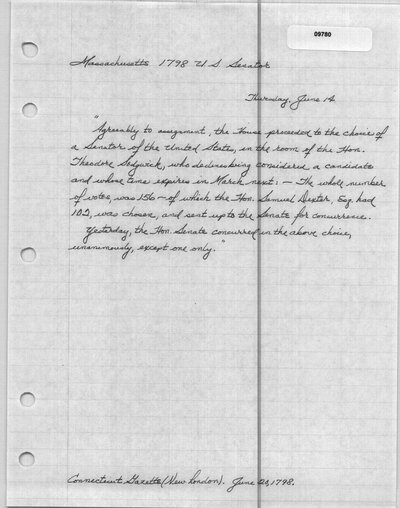 09780
Massachusetts 1798 U S Senator
Thursday, June 14
"Agreeably to assignment, the House proceeded to the choice of
a Senator of the United States, in the room of the Hon.
Theodore Sedgwick, who declines being considered a candidate
and whose time expires in March next: — The whole number
of votes, was 156 — of which the Hon. Samuel Dexter, Esq. had
102, was chosen, and sent up to the Senate for concurrence.
Yesterday, the Hon. Senate concurred in the above choice,
unanimously, except one only."
Connecticut Gazette (New London). June 20, 1798.